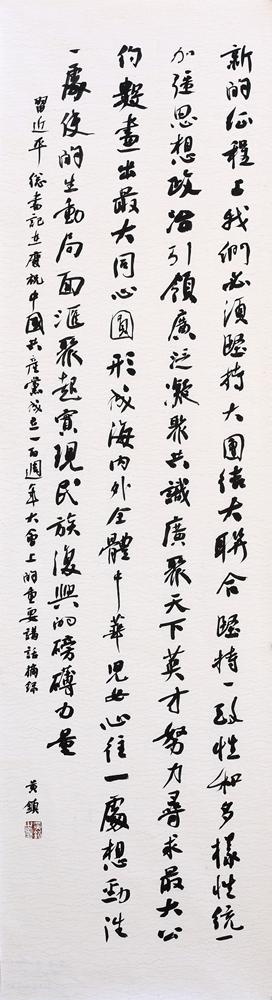 新的征程上我們必須堅持大團結大聯合堅持一致性和多樣性統一
加強思想政治引領廣泛凝聚共識廣聚天下英才努力尋求最大公
約數畫出最大同心圓形成海內外全體中華兒女心往一處想勁往
一處使的生動局面匯聚起實現民族復興的磅礴力量
習近平總書記在慶祝中國共產黨成立一百週年大會上的重要講話摘錄
黃鎮